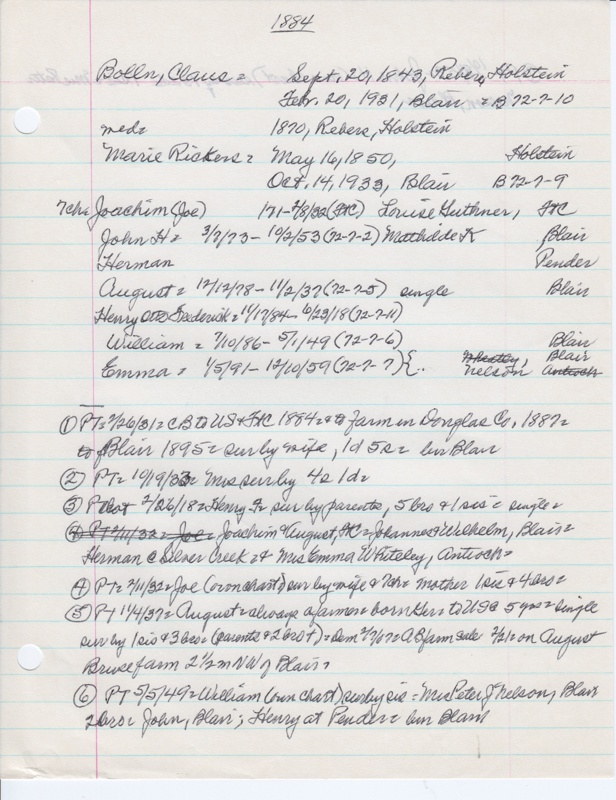 1884
Bolln, Claus = Sept. 20, 1843, Rebers, Holstein
Feb. 20, 1931, Blair = B 72-7-10
med= 1870, Rebers, Holstein
Marie Rickers = May 16, 1850, Holstein
Oct. 14, 1933, Blair B 72-7-9
7ch= Joachim (Joe) 171- 2/8/32 (FtC) Louise Guthner, FtC
John H = 3/7/73 - 10/2/53 (72-7-2) Mathilde K Blair
Herman Pender
August = 12/12/78 - 11/2/37 (72-7-5) single Blair
Henry Frederick = 11/17/84 - 6/23/18 (72-7-11)
William = 7/10/86 - 5/1/49 (72-7-6) Blair
Emma = 1/5/91 - 12/10/59 (72-7-7) {.. Whiteley, Blair
Nelson Antioch
① PT = 2/26/31 = c B to US & FtC 1884 = to farm in Douglas Co, 1887 =
to Blair 1895 = sur by wife, 1d 5s = bur Blair
② PT = 10/19/33 = Mrs sur by 4s 1d =
③ P obit 2/26/18 = Henry F = sur by parents, 5 brs & 1 sis = single =
④ PT 2/11/32 = Joe = Joachim & August, FtC = Johannes & Wilhelm, Blair =
Herman c Silver Creek = & Mrs Emma Whiteley, Antioch =
④ PT = 2/11/32 = Joe (own chart) sur by wife & 7ch = mother 1 sis & 4 bros =
⑤ PT 11/4/37 = August = always a farmer = born Ger = to USA 5 yrs = single
sur by 1 sis & 3 bros = (parents & 2 bros †) = 2/7/07 = AB farm sale 2/21 = on August
Bruse farm 2 1/2 m NW of Blair =
⑥ PT 5/5/49 = William (own chart) sur by sis = Mrs Peter J Nelson, Blair
2 bros = John, Blair; Henry at Pender = bur Blair